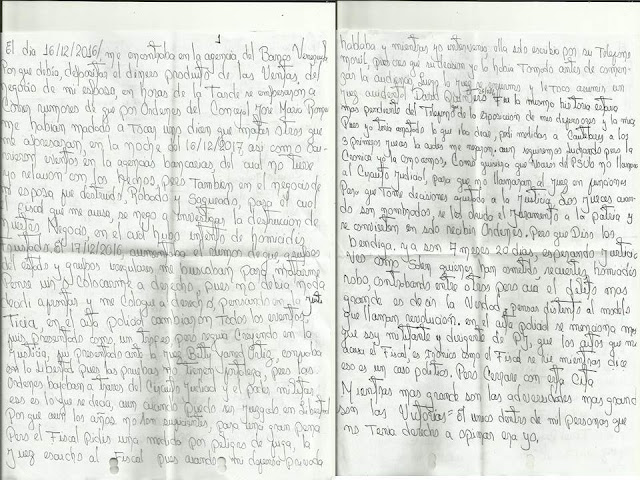 1
El dia 16/12/2016, me encontraba en la agencia del Banco Venezuela
Porque debia depositar el dinero producto de las Ventas, del
negocio de mi esposa en horas de la Tarde se empezaron a
Correr rumores de que por Ordenes del Concejal Jose Maria
me habian mandado a Tocar unos dicen que matar otros que
me aboresagan, en la noche del 16/12/2017 asi como
eventos en la agencias bancarias del cual no tuve
relacion con los hechos, pues Tambien en el negocio de
mi esposa fue destruido, Robado y Saqueado, para el cual
Fiscal que me acusa, se nego a investigar la destruccion de
Nuestro Negocio, en el cual hubo intento de homicidio
el 17/12/2016, el rumor de que
del estado y grupos me buscaban para
Pense un colocarme a derecho, pues no debia nada
decidi apuntar y me coloque a derecho, pensando en
Ticia, en el acta policial cambiaron Todos los eventos,
fuis presentado como un Trofeo pero segui Creyendo en la
Justicia, fui presentado ante la Juez
en Libertad pues las pruebas no Tienen fortaleza, pero las
Ordenes bajaban a traves del Circuito Judicial y el Poder militar
eso es lo que se decia, aun cuando puedo ser Juzgado en Libertad
Por que aun los años no son suficientes, para una gran pena
Pero el Fiscal pidio una medida por peligro de fuga, la
Juez escucho al Fiscal pues cuando mi defensa privada
hablaba y mientras yo intervenia ella solo escribia por su Telefono
movil, pues creo que su decision ya la habia Tomado antes de comen-
zar la audiencia, luego la Juez y le Toco asumir un
Juez accidental David fue la misma historia estuvo
mas pendiente del Telefono de la exposicion de mis defensores y la mia
Pues yo tenia anotado lo que iba decir, pedi medidas a Cautelares a los
3 primeros Jueces la audiencia me negaron. aun seguiremos luchando pero la
Cronica ya la conocemos, Como quisiera que Voceros del PSUV no llamaran
al Circuito Judicial, para que no llamaran al Juez en funciones
Para que Tome decisiones ajustado a la Justicia dos Jueces cuan-
do son nombrados, se les olvido el Juramento a la patria y
se convierten en solo recibir Ordenes. Pero que Dios los
bendiga, ya son 7 meses 20 dias, esperando Justicia
Veo como Salen quienes han cometido secuestro, homicidio
robo, contrabando entre otros pero aca el delito mas
grande es decir la Verdad, pensar distinto al modelo
que llaman revolucion. en el acta policial se menciona
que soy militante y dirigente de PJ, que los años que me
acusa el Fiscal, es ironico como el Fiscal se rie mientras dice
eso es un caso politico, Pero Cerrare con esta Cita
Mientras mas grande son las adversidades mas grande
son las Victorias = El unico dentro de mil personas que
no Tenia derecho a opinar era yo.